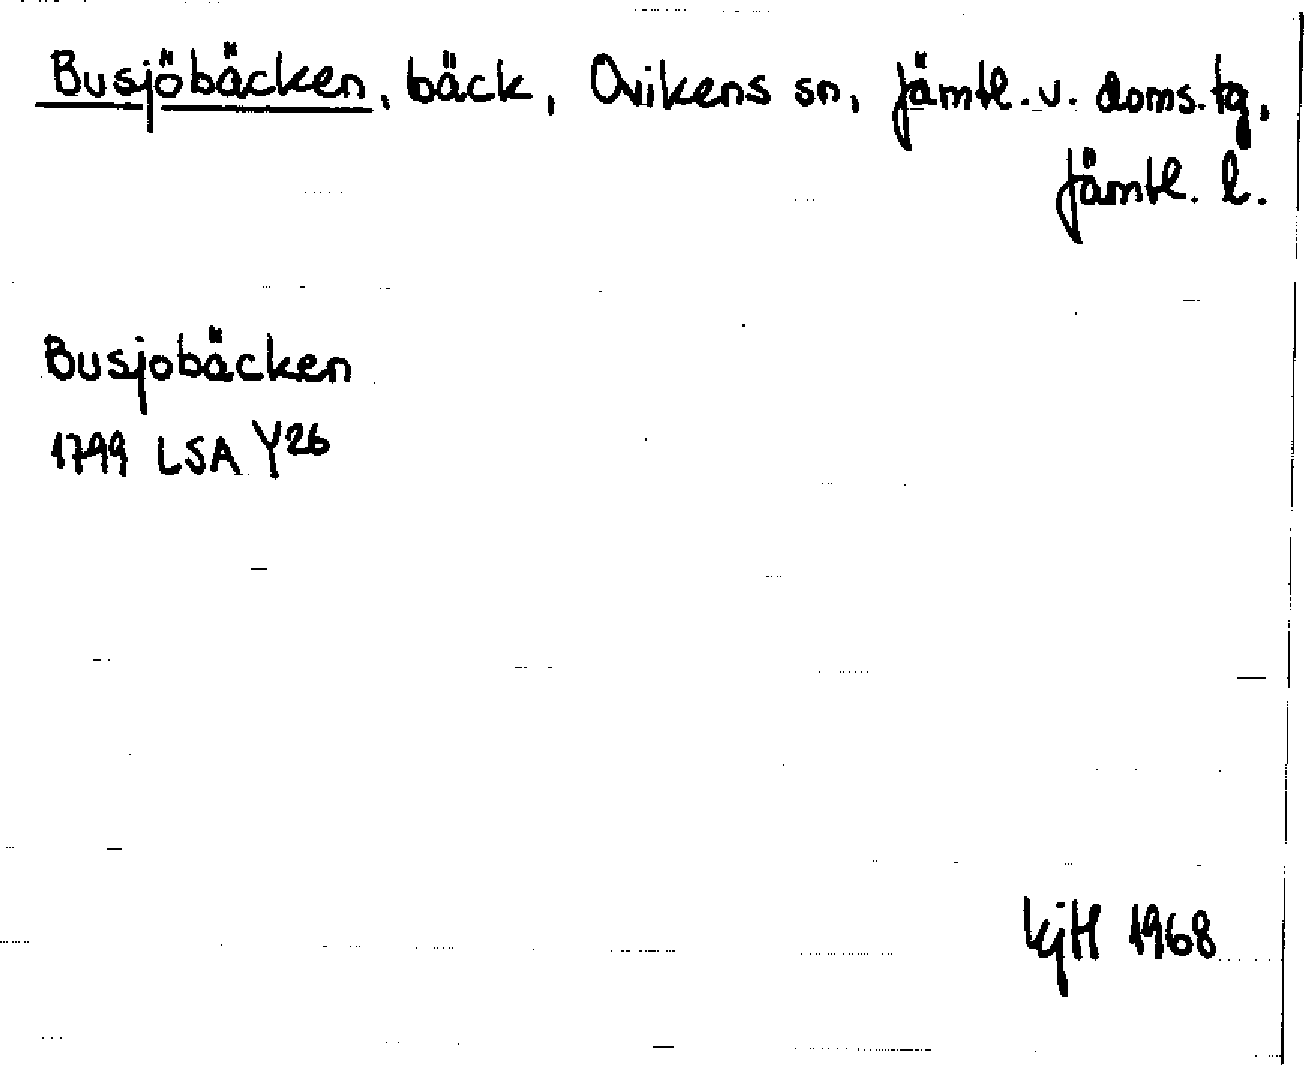 Busjöbäcken, bäck, Ovikens sn, Jämtl. v. doms. tg,
Jämtl. l.
Busjobäcken
1799 LSA Y26
KjH 1968